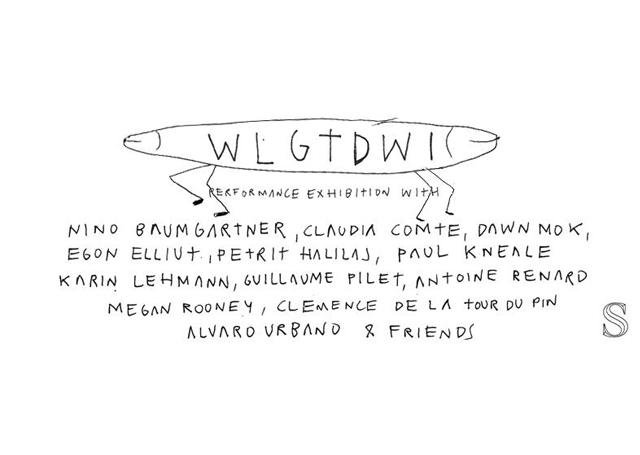 WLGTDWI
PERFORMANCE EXHIBITION WITH
NINO BAUMGARTNER, CLAUDIA COMTE, DAWN MOK,
EGON ELLIUT, PETRIT HALILAJ, PAUL KNEALE
KARIN LEHMANN, GUILLAUME PILET, ANTOINE RENARD
MEGAN ROONEY, CLEMENCE DE LA TOUR DU PIN
ALVARO URBANO & FRIENDS
S